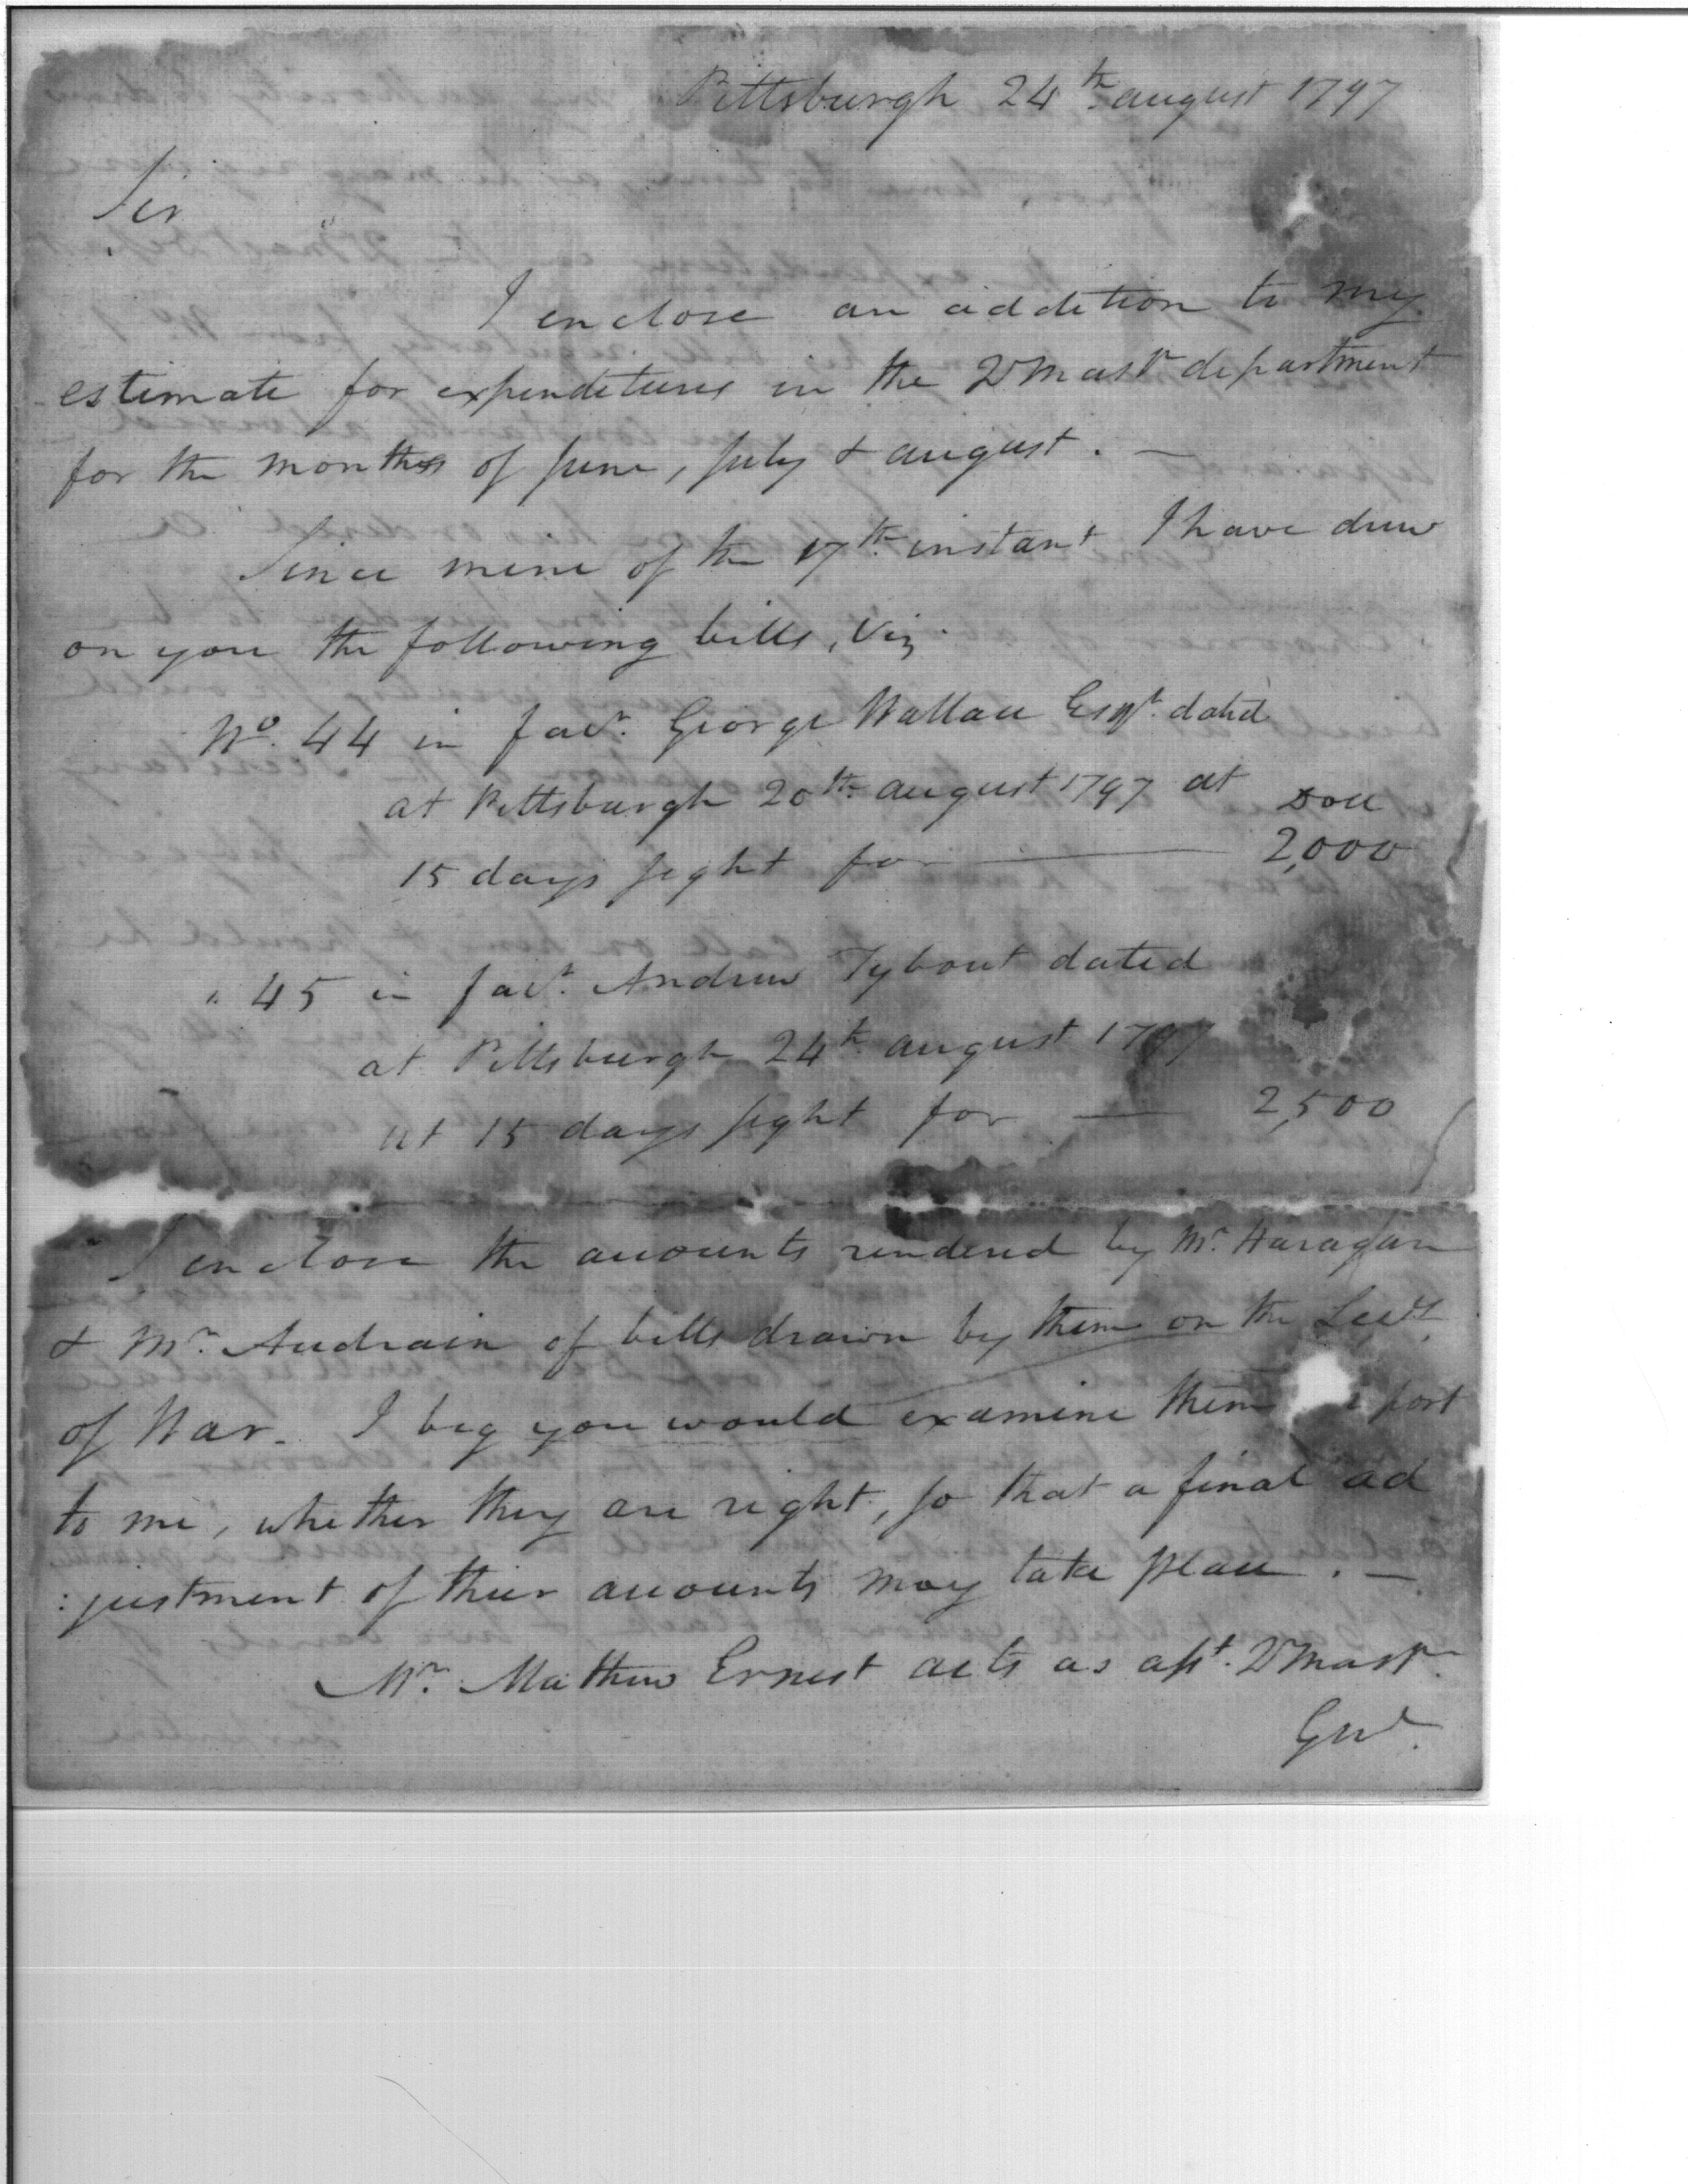 Pittsburgh 24th august 1797
Sir
I enclose an addition to my
estimate for expenditures in the QrMastr department
for the months of June, July & august. —
Since mine of the 17th instant I have drew
on you the following bills, Viz.
No. 44 in favr. George Wallace Esqr. dated
at Pittsburgh 20th august 1797 at Doll
15 days sight for — 2,000
" 45 in favr. Andrew Tybout dated
at Pittsburgh 24th august 1797
at 15 days sight for — 2,500
I enclose the accounts rendered by Mr. Haragan
& Mr. Audrain of bills drawn by them on the Secy.
of War. I beg you would examine them port
to me, whether they are right, so that a final ad
:justment of their accounts may take place. —
Mr. Mathew Ernest acts as asst. QrMastr.
Genl.